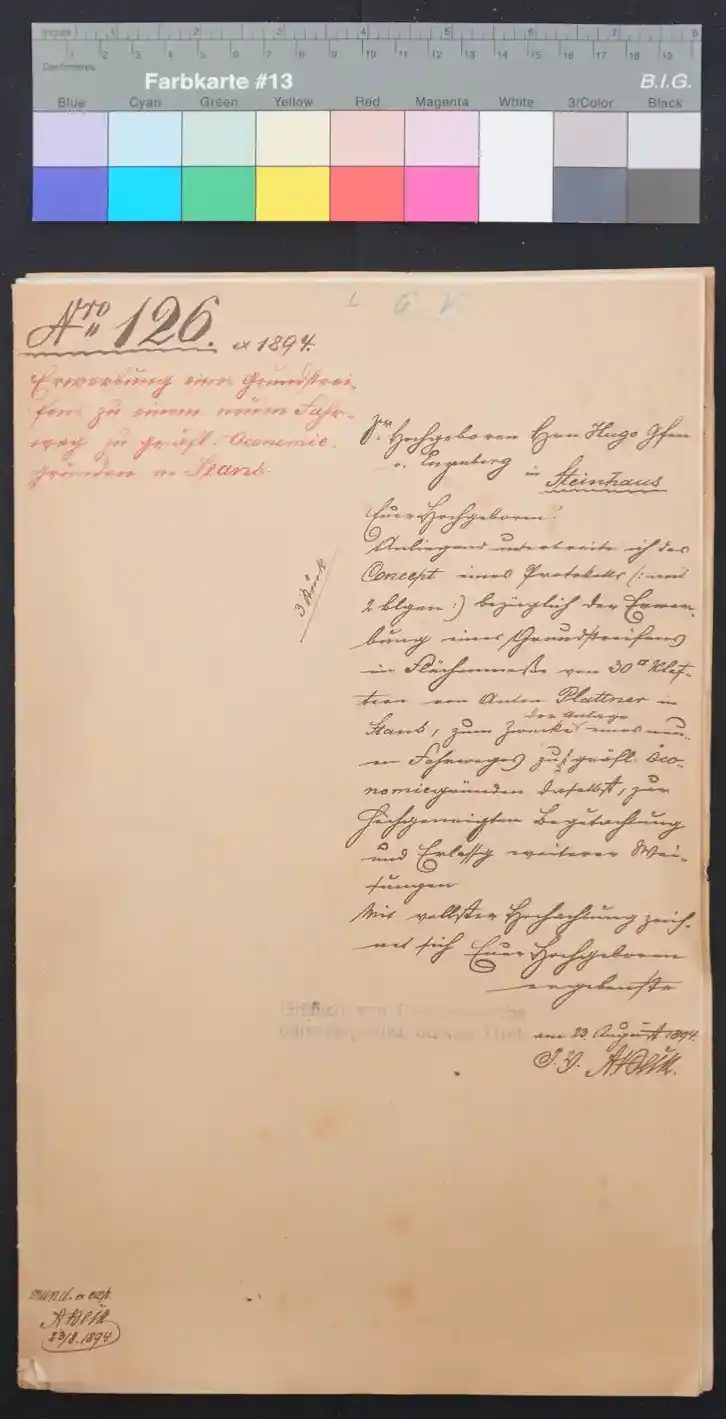 inches 1 2 3 4 5 6 7 8
1 2 3 4 5 6 7 8 9 10 11 12 13 14 15 16 17 18 19
Centimetres
Farbkarte #13 B.I.G.
Blue Cyan Green Yellow Red Magenta White 3/Color Black
Nro 126. ex 1894.
Erwerbung eines Grundstrei-
fens zu einem neuen Fahr-
weg zu gräfl. Oeconomie-
gründen in Stans.
Sr. Hochgeboren Hrn Hugo Gfen
v. Enzenberg in Steinhaus
Euer Hochgeboren!
Anliegend unterbreite ich das
Concept eines Protokolls (: mit
2 blgen :) bezüglich der Erwer-
bung eines Grundstreifens
im Flächenmaße von 30 □ Klaf-
tern von Anton Plattner in
Stans, zum Zwecke der Anlage eines neu-
en Fahrweges zu gräfl. Oeco-
nomiegründen daselbst, zur
hochgeneigten Begutachtung
und Erlassg weiterer Wei-
sungen
Mit vollster Hochachtung zeich-
net sich Euer Hochgeboren
ergebenster
am 23. August 1894.
I. V.
3 Stück
mund. & exp.
23/8.1894